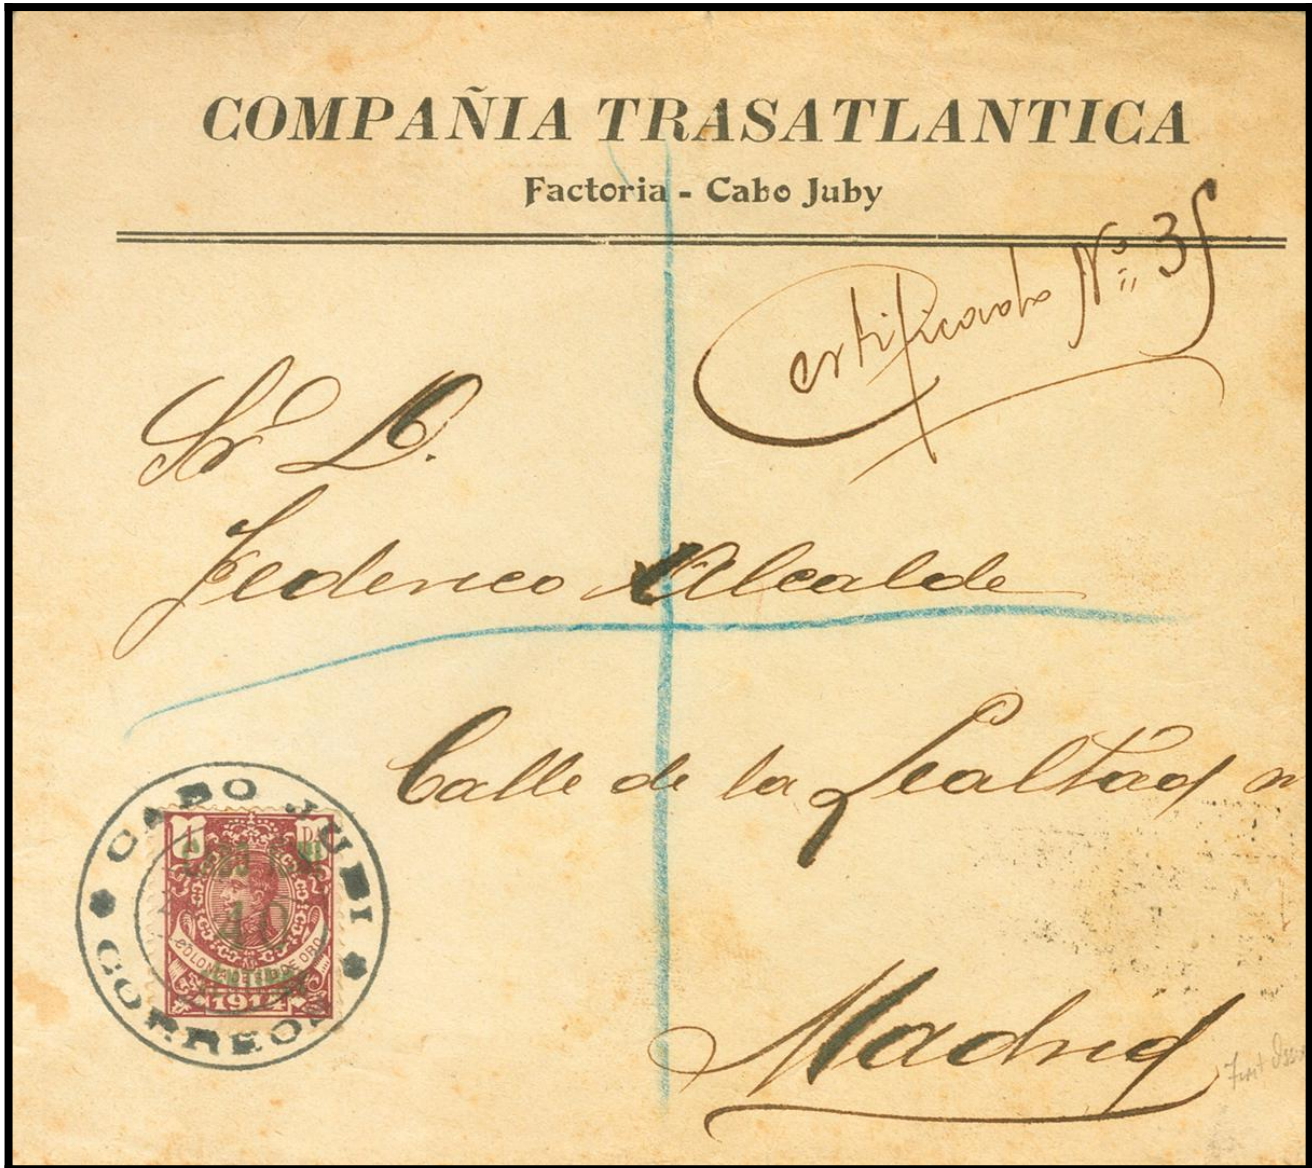 COMPAÑIA TRASATLANTICA
Factoria - Cabo Juby
Certificado Nº 35
Sr D.
Federico Alcalde
Calle de la Lealtad n
Madrid
CABO JUBI
1
CABO JUBI
40
COLONIA DE ORO
1914
CORREOS
First Issue